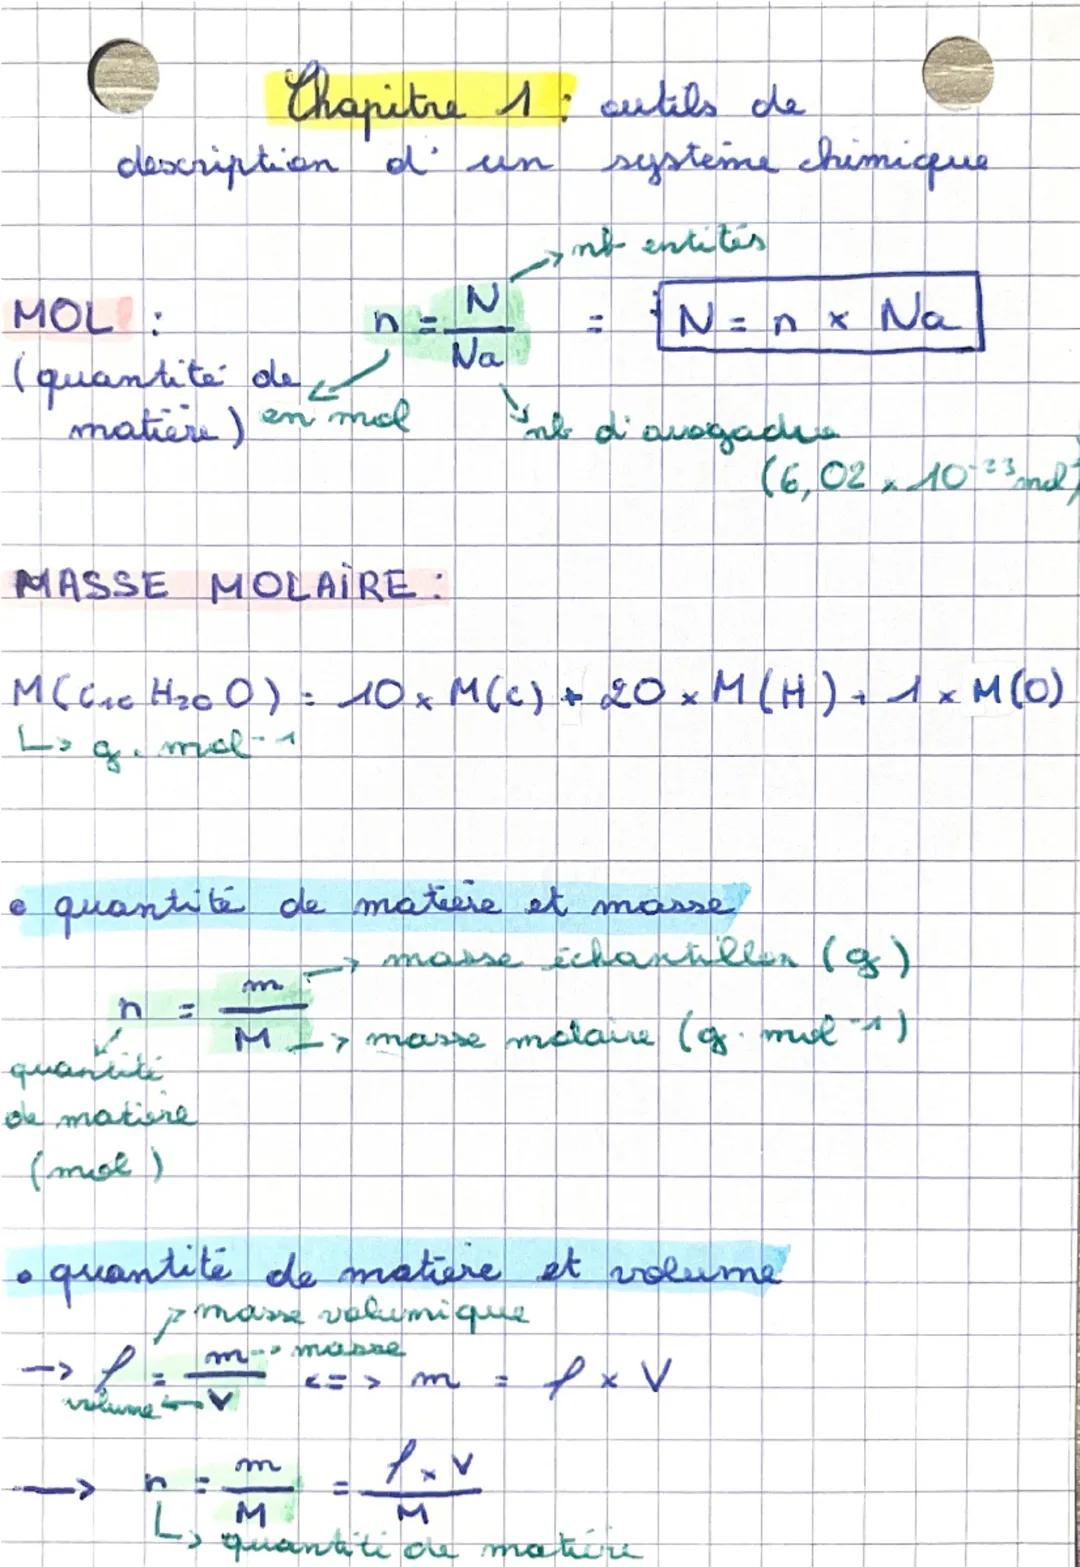 Chapitre 1 : outils de
description d'un système chimique
nb entités
MOL : n = N / Na = N = n x Na
(quantité de
matière) en mol nb d'avogadro
(6,02 x 10-23 mol
MASSE MOLAIRE :
M(C10 H20 O) = 10 x M(C) + 20 x M(H) + 1 x M(O)
↳ g. mol-1
• quantité de matière et masse
→ masse échantillon (g)
n = m / M
↳ masse molaire (g. mol-1)
quantité
de matière
(mol)
• quantité de matière et volume
masse volumique
→ ρ = m / V → masse <=> m = ρ x V
volume ←
→ n = m / M = ρ x V / M
↳ quantité de matière